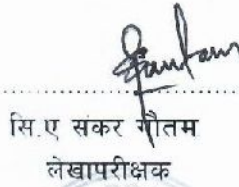 सि.ए संकर गौतम
लेखापरीक्षक